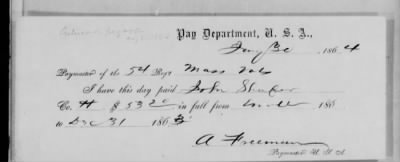 Pay Department, U. S. A.,
Jany 30 1864
Paymaster of the 54 Reg't Mass Vols
I have this day paid John
Co. H $ 53 20 in full from 186
to Dec 31 1863
A Freeman
Paymaster U. S. A